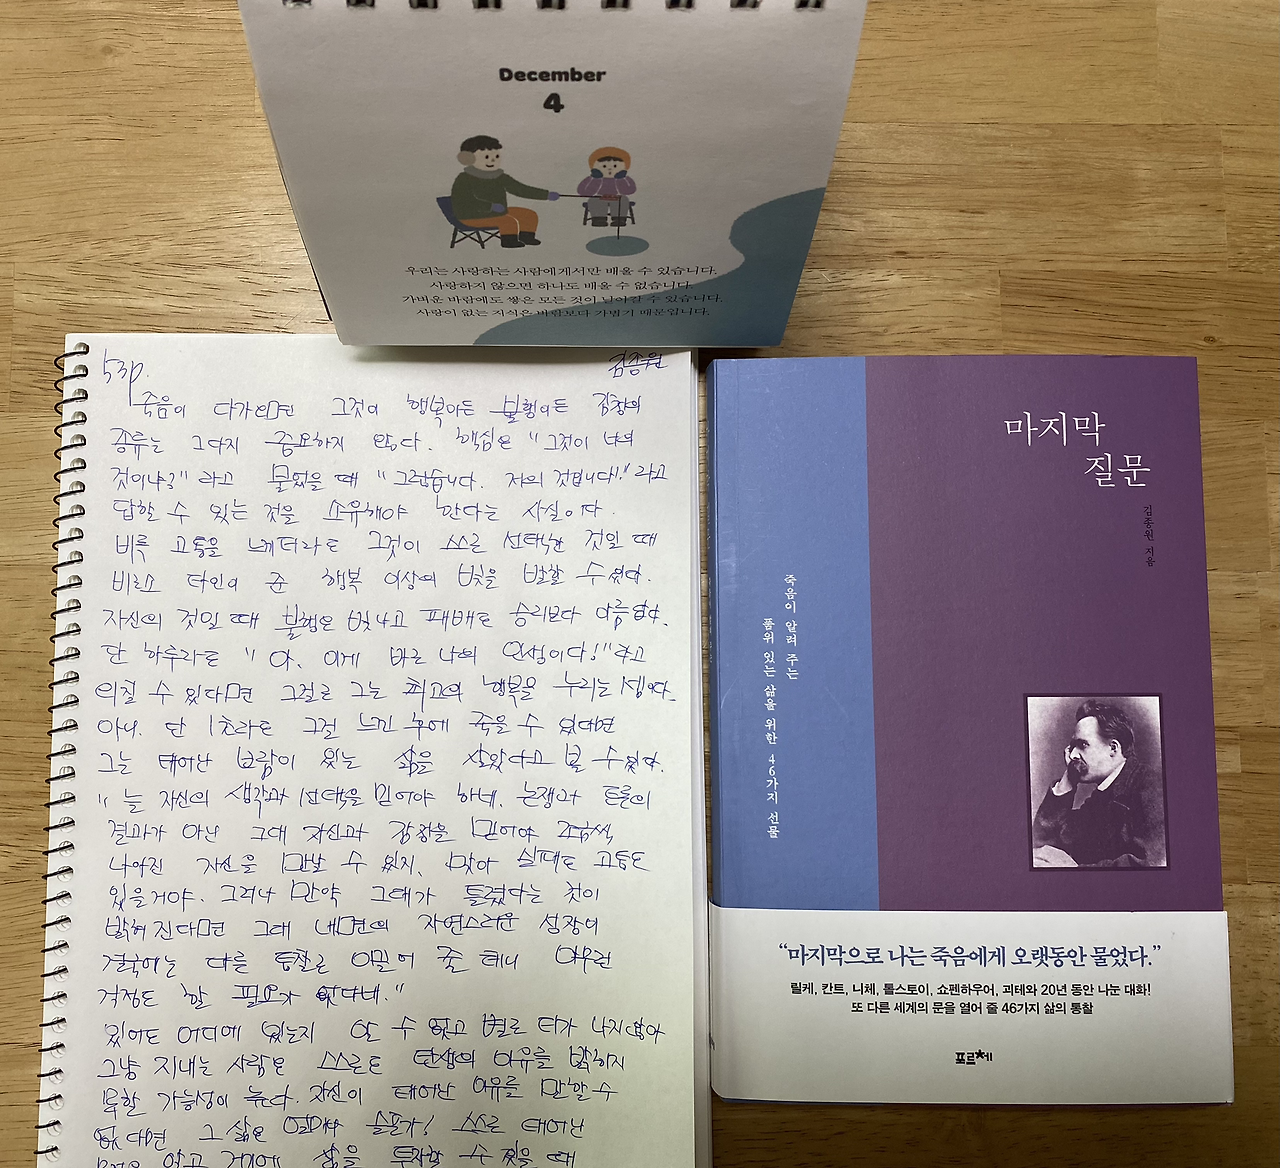 December
4
우리는 사랑하는 사람에게서만 배울 수 있습니다.
사랑하지 않으면 하나도 배울 수 없습니다.
가벼운 바람에도 쌓은 모든 것이 날아갈 수 있습니다.
사랑이 없는 지식은 바람보다 가볍기 때문입니다.
53p. 김종원
죽음이 다가오면 그것이 행복이든 불행이든 감정의
종류는 그다지 중요하지 않다. 핵심은 "그것이 너의
것이냐?" 라고 물었을 때 "그렇습니다. 저의 것입니다!" 라고
답할 수 있는 것을 소유해야 한다는 사실이다.
비록 고통을 느끼더라도 그것이 스스로 선택한 것일 때
비로소 타인이 준 행복 이상의 빛을 발할 수 있다.
자신의 것일 때 불행은 빛나고 패배도 승리보다 아름답다.
단 하루라도 "아, 이게 바로 나의 인생이다!"라고
외칠 수 있다면 그걸로 그는 최고의 행복을 누리는 셈이다.
아니. 단 1초라도 그걸 느낀 후에 죽을 수 있다면
그는 태어난 보람이 있는 삶을 살았다고 볼 수 있다.
"늘 자신의 생각과 선택을 믿어야 하네. 논쟁과 토론의
결과가 아닌 그대 자신과 감정을 믿어야 조금씩
나아진 자신을 만날 수 있지. 맞아 실패도 고통도
있을거야. 그러나 만약 그대가 틀렸다는 것이
밝혀진다면 그대 내면의 자연스러운 성장이
결국에는 다른 통찰로 이끌어 줄 테니 아무런
걱정도 할 필요가 없다네."
있어도 어디에 있는지 알 수 없고 별로 티가 나지 않아
그냥 지내는 사람은 스스로도 탄생의 이유를 밝히지
못할 가능성이 높다. 자신이 태어난 이유를 말할 수
없다면 그 삶은 얼마나 슬픈가! 스스로 태어난
알고 거기에 삶을 투자할 수 있을 때
마지막
질문
김종원 지음
죽음이 알려 주는
품위 있는 삶을 위한 46가지 선물
“마지막으로 나는 죽음에게 오랫동안 물었다.”
릴케, 칸트, 니체, 톨스토이, 쇼펜하우어, 괴테와 20년 동안 나눈 대화!
또 다른 세계의 문을 열어 줄 46가지 삶의 통찰
포르체